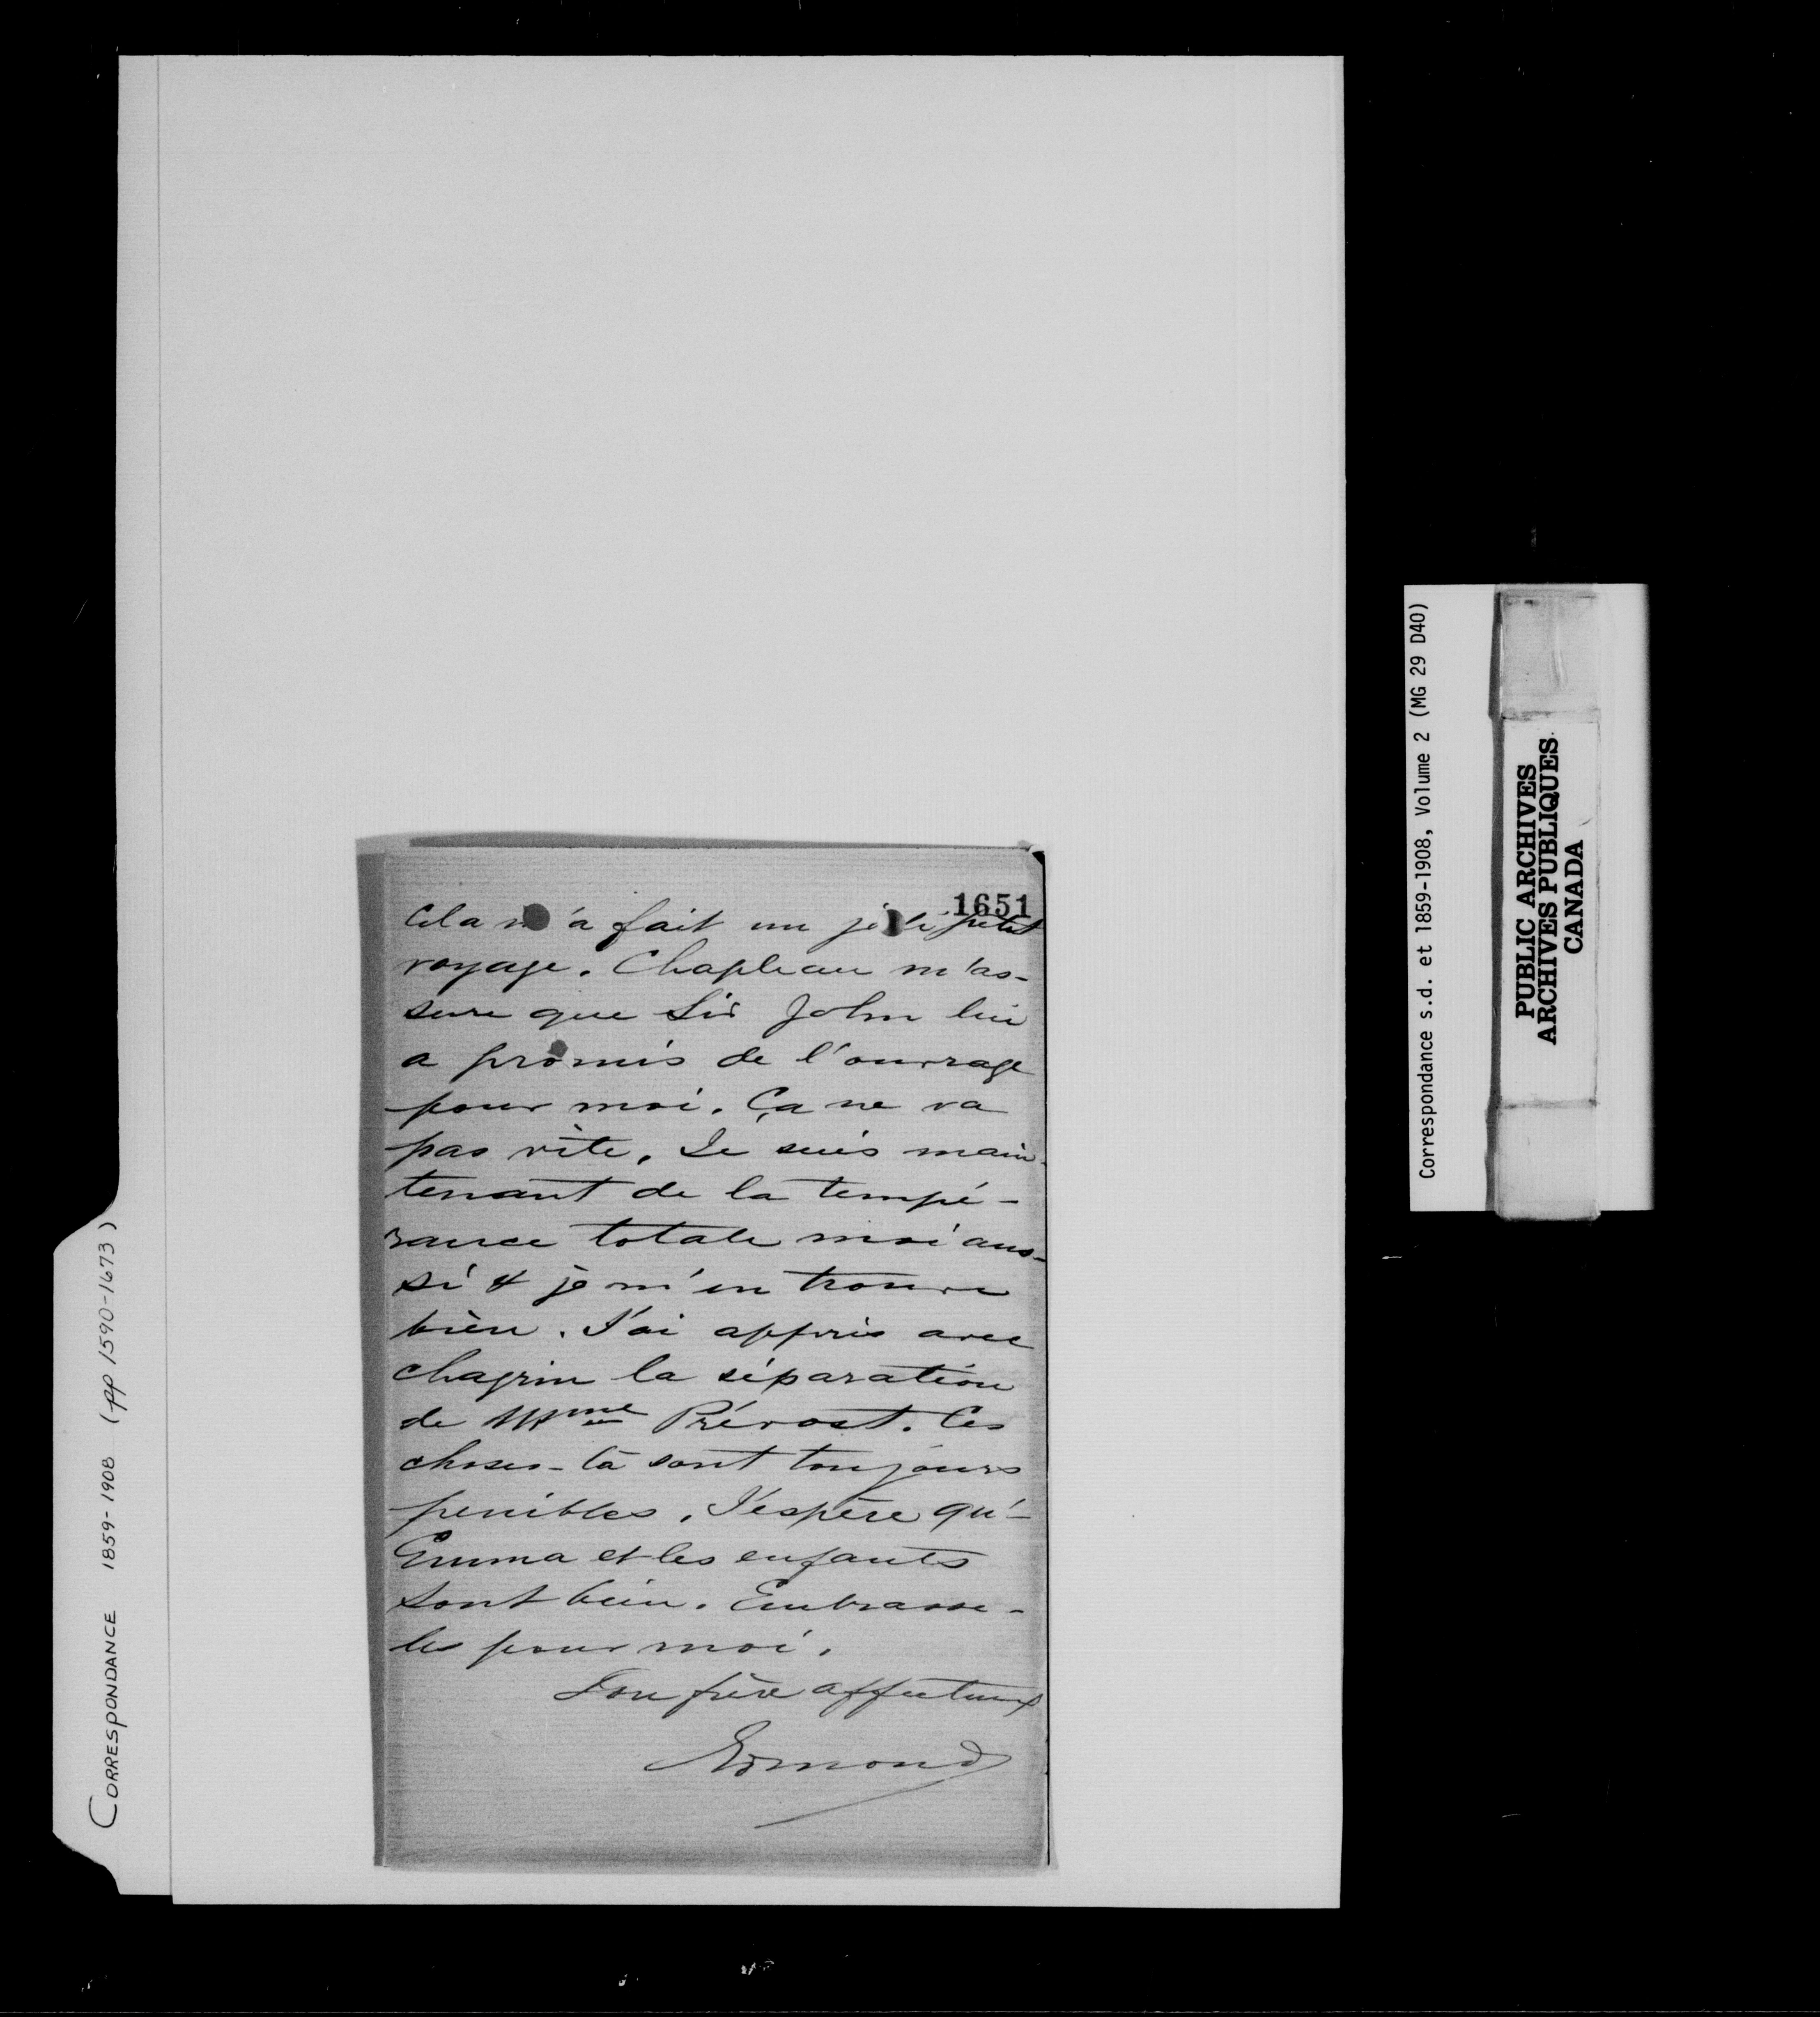 1651
Cela m'a fait un joli petit
voyage. Chapleau m'as-
sure que Sir John lui
a promis de l'ouvrage
pour moi. Ça ne va
pas vite. Je suis main-
tenant de la tempé-
rance totale moi aus-
si & je m'en trouve
bien. J'ai appris avec
chagrin la séparation
de Mme Prévost. Ces
choses-là sont toujours
penibles. J'espère qu'-
Emma et les enfants
sont bien. Embrasse-
les pour moi.
Ton frère affectueux
Edmond
CORRESPONDANCE 1859-1908 (pp 1590-1673)
Correspondance s.d. et 1859-1908, Volume 2 (MG 29 D40)
PUBLIC ARCHIVES
ARCHIVES PUBLIQUES
CANADA